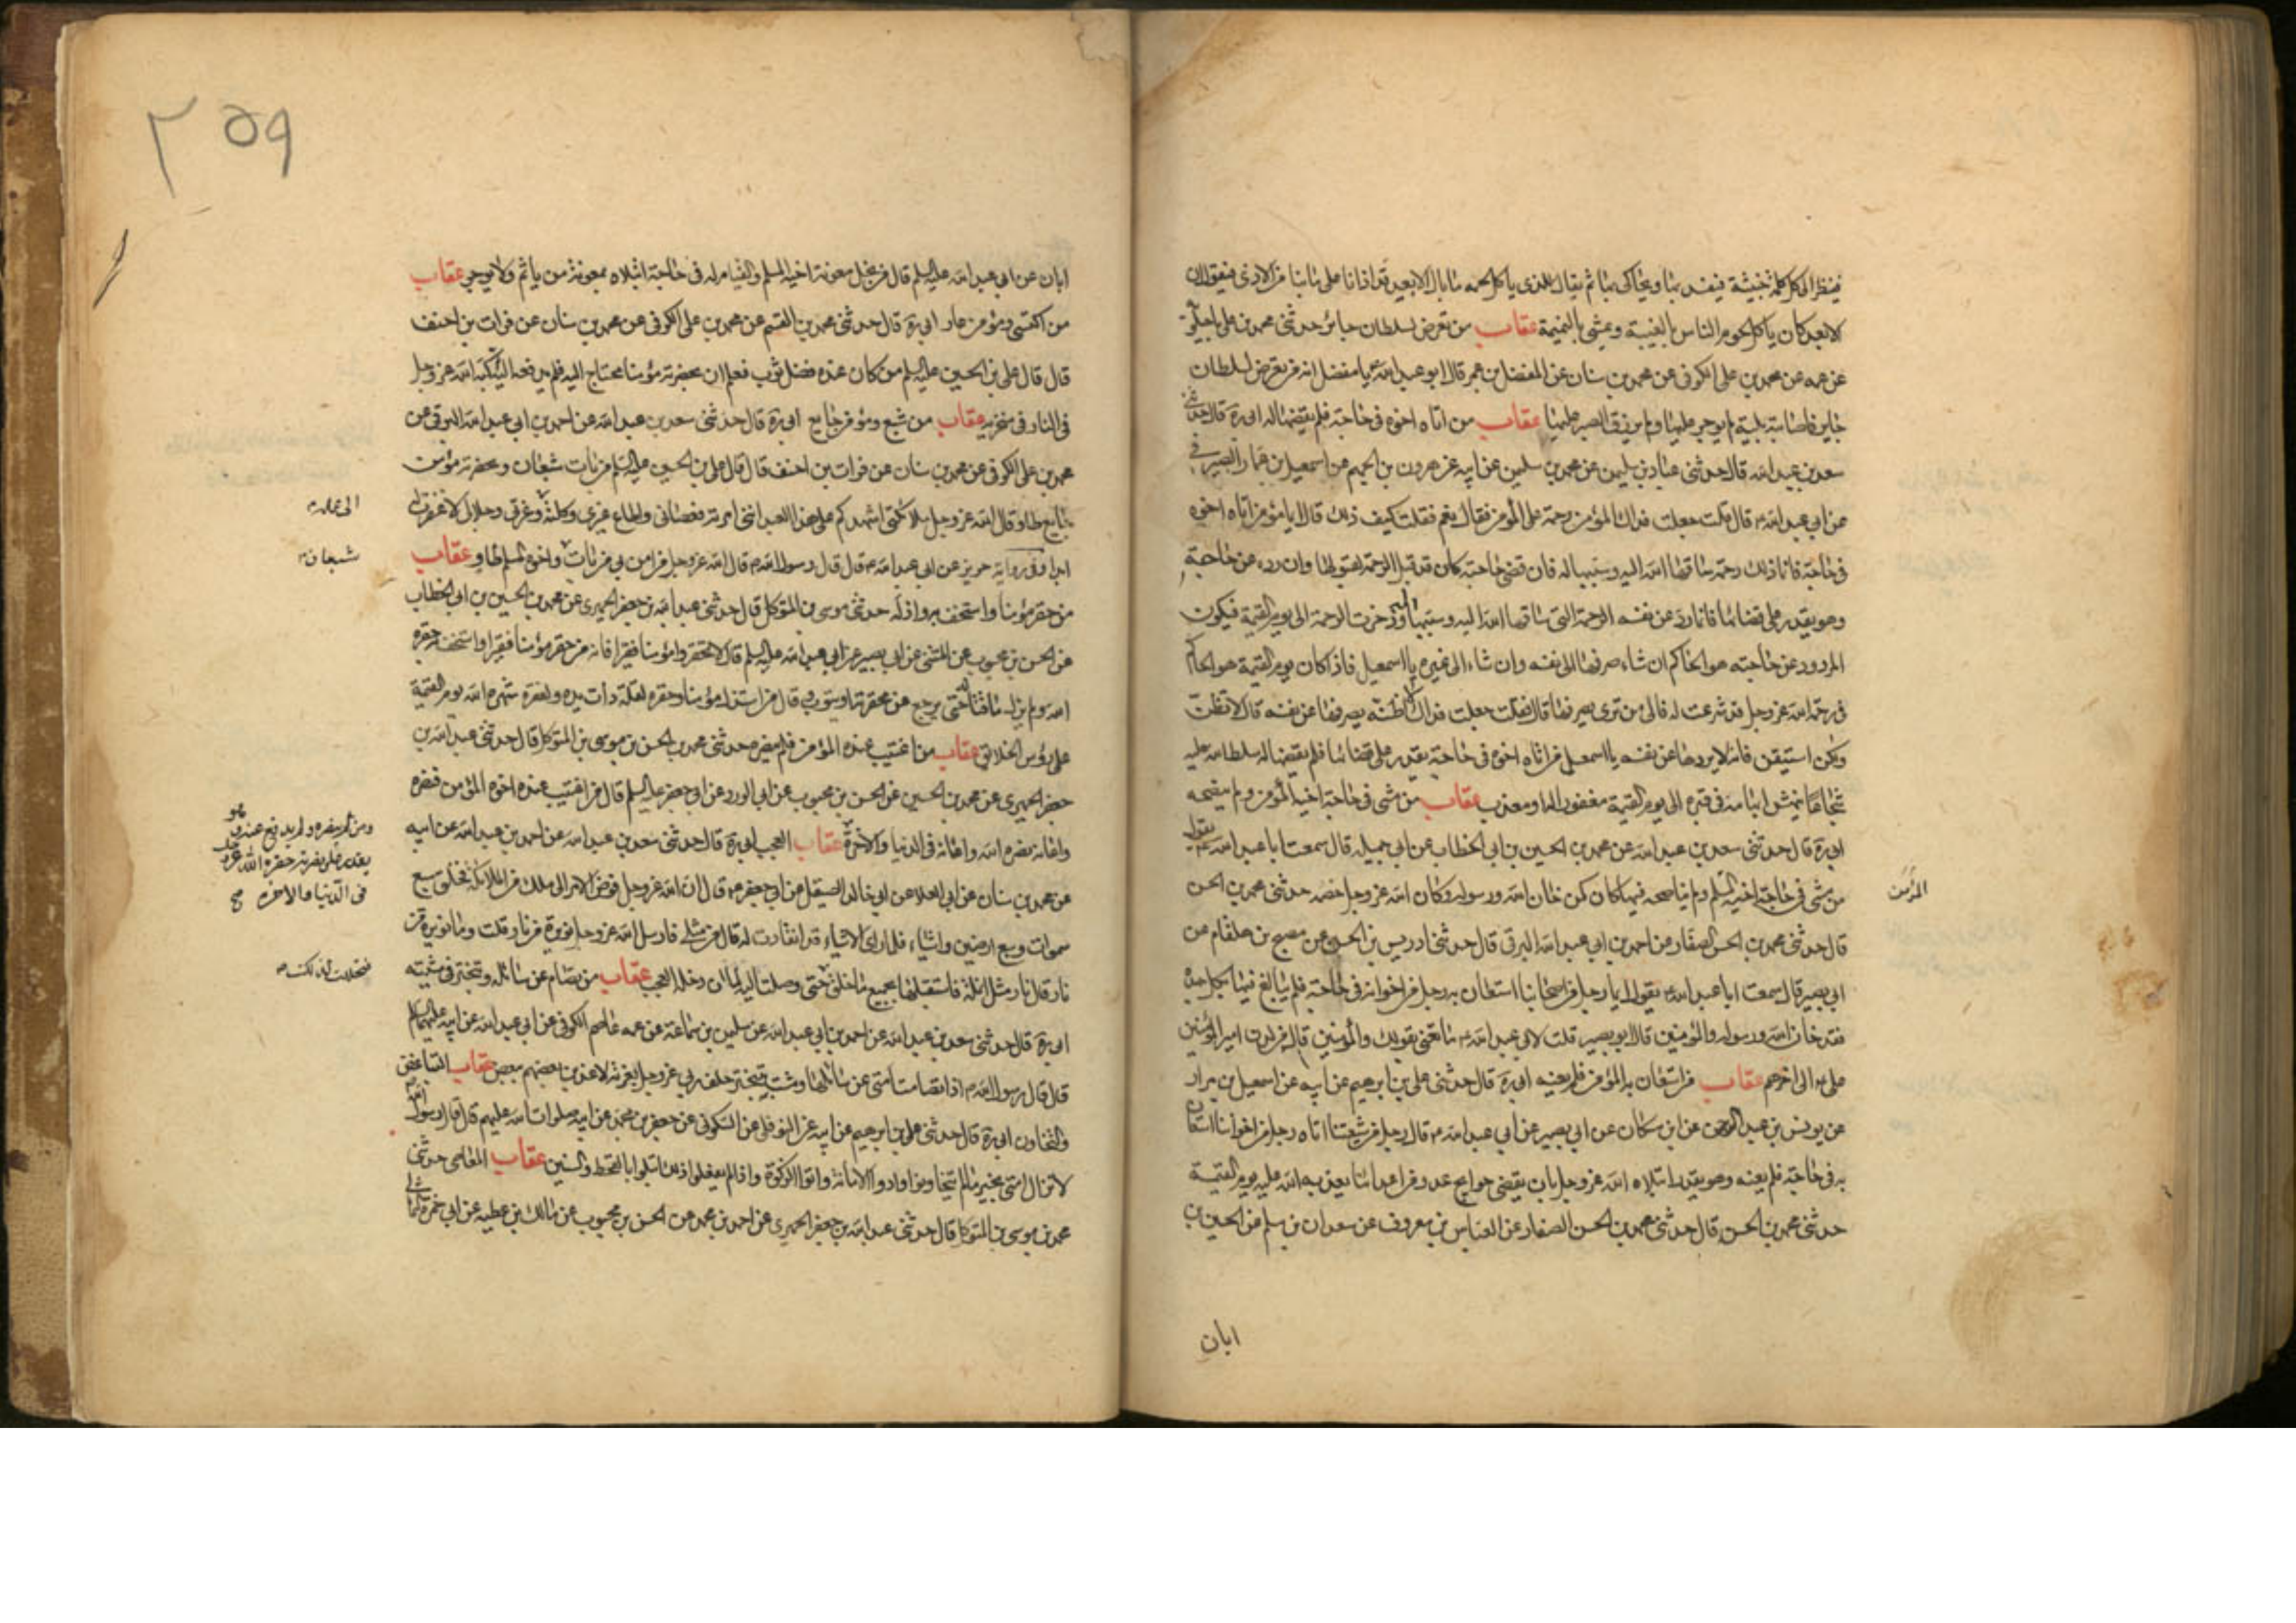 فينظر الى كل كلمة خبيثة فيفسد بها ويحاكى بها ثم يقال للذى ياكل لحمه ما بال الابعد قد اذانا على ما بنا من الاذى فيقول ان
الابعد كان ياكل لحوم الناس بالغيبة ويمشى بالنميمة عقاب من تعرض لسلطان جائر حدثنى محمد بن على ماجيلويه
عن عمه عن محمد بن على الكوفى عن محمد بن سنان عن المفضل بن عمر قال ابو عبد الله ع يا مفضل انه من تعرض لسلطان
جاير فاصابته بلية لم يوجر عليها ولم يرزق الصبر عليها عقاب من اتاه اخوه فى حاجة فلم يقضها له ابى ره قال حدثنى
سعد بن عبد الله قال حدثنى عباد بن سليمن عن محمد بن سليمن عن ابيه عن هرون بن الجهم عن اسمعيل بن عمار الصيرفى
عن ابى عبد الله ع قال قلت جعلت فداك المؤمن رحمة على المؤمن فقال نعم فقلت كيف ذلك قال ايما مؤمن اتاه اخوه
فى حاجة فانما ذلك رحمة ساقها الله اليه وسببها له فان قضى حاجته كان قد قبل الرحمة بقبولها وان رده عن حاجته
وهو يقدر على قضائها فانما رد عن نفسه الرحمة التى ساقها الله اليه وسببها له وذخرت الرحمة الى يوم القيمة فيكون
المردود عن حاجته هو الحاكم ان شاء صرفها الى نفسه وان شاء الى غيره يا اسمعيل فاذا كان يوم القيمة هو الحاكم
فى رحمة الله عز وجل قد شرعت له فالى من ترى يصرفها قال فقلت جعلت فداك لا اظنه يصرفها عن نفسه قال لا تظن
ولكن استيقن فانه لا يردها عن نفسه يا اسمعيل من اتاه اخوه فى حاجة يقدر على قضائها فلم يقضها له سلط الله عليه
شجاعا ينهش ابهامه فى قبره الى يوم القيمة مغفور له او معذب عقاب من مشى فى حاجة اخيه المؤمن ولم ينصحه
ابى ره قال حدثنى سعد بن عبد الله عن محمد بن الحسين بن ابى الخطاب عن ابى جميله قال سمعت ابا عبد الله ع يقول
من مشى فى حاجة اخيه المسلم ولم يناصحه فيها كان كمن خان الله ورسوله وكان الله عز وجل خصمه حدثنى محمد بن الحسن
المؤمن
قال حدثنى محمد بن الحسن الصفار عن احمد بن ابى عبد الله البرقى قال حدثنى ادريس بن الحسن عن مصبح بن هلقام عن
ابى بصير قال سمعت ابا عبد الله ع يقول ايما رجل من اصحابنا استعان به رجل من اخوانه فى حاجة فلم يبالغ فيها بكل جهده
فقد خان الله ورسوله والمؤمنين قال ابو بصير قلت لابى عبد الله ع ما تعنى بقولك والمؤمنين قال من لدن امير المؤمنين
على ع الى اخرهم عقاب من استعان به المؤمن فلم يعنه ابى ره قال حدثنى على بن ابرهيم عن ابيه عن اسمعيل بن مرار
عن يونس بن عبد الرحمن عن ابن مسكان عن ابى بصير عن ابى عبد الله ع قال ايما رجل من شيعتنا اتاه رجل من اخواننا استعان
به فى حاجة فلم يعنه وهو يقدر ابتلاه الله عز وجل بان يقضى حوايج عدو من اعدائنا يعذبه الله عليه يوم القيمة
حدثنى محمد بن الحسن قال حدثنى محمد بن الحسن الصفار عن العباس بن معروف عن سعدان بن مسلم عن الحسين بن
ابان
٢٥٩
ابان عن ابى عبد الله عليه السلم قال من بخل بمعونة اخيه المسلم والقيام له فى حاجة ابتلاه بمعونة من ياثم ولا يوجر عقاب
من اكتسى ومؤمن عار ابى ره قال حدثنى محمد بن القسم عن محمد بن على الكوفى عن محمد بن سنان عن فرات بن احنف
قال قال على بن الحسين عليه السلم من كان عنده فضل ثوب فعلم ان بحضرته مؤمنا محتاج اليه فلم يدفعه اليه اكبه الله عز وجل
فى النار فى منخريه عقاب من شبع ومؤمن جايع ابى ره قال حدثنى سعد بن عبد الله عن احمد بن ابى عبد الله البرقى عن
محمد بن على الكوفى عن محمد بن سنان عن فرات بن احنف قال قال على بن الحسين عليه السلم من بات شبعان وبحضرته مؤمن
جايع طاو قال الله عز وجل ملائكتى اشهدكم على هذا العبد اننى امرته فعصانى واطاع غيرى وكلته وعزتى وجلالى لا غفرت له
الى عمله
ابدا وفى رواية حريز عن ابى عبد الله ع قال قال رسول الله ص قال الله عز وجل ما امن بى من بات واخوه المسلم طاو عقاب
شبعان
من حقر مؤمنا واستخف به واذله حدثنى موسى بن المتوكل قال حدثنى عبد الله بن جعفر الحميرى عن محمد بن الحسين بن ابى الخطاب
عن الحسن بن محبوب عن المثنى عن ابى بصير عن ابى عبد الله عليه السلم قال لا تحقروا مؤمنا فقيرا فانه من حقر مؤمنا فقيرا واستخف به حقره
الله ولم يزل ماقتا له حتى يرجع عن محقرته او يتوب وقال من استذل مؤمنا وحقره لقلة ذات يده ولفقره شهره الله يوم القيمة
على رؤس الخلائق عقاب من اغتيب عنده المؤمن فلم ينصره حدثنى محمد بن الحسن بن موسى بن المتوكل قال حدثنى عبد الله بن
جعفر الحميرى عن محمد بن الحسين عن الحسن بن محبوب عن ابى الورد عن ابى جعفر عليه السلم قال من اغتيب عنده اخوه المؤمن فنصره
واعانه نصره الله واعانه فى الدنيا والاخرة عقاب العجب ابى ره قال حدثنى سعد بن عبد الله عن احمد بن عبد الله عن ابيه
ومن لم ينصره ولم يدفع عنه وهو
يقدر على نصرته حقره الله عز وجل
فى الدنيا والاخره صح
عن محمد بن سنان عن ابى العلا عن ابى خالد الصيقل عن ابى جعفر ع قال ان الله عز وجل فوض الامر الى ملك من الملائكة فخلق سبع
سموات وسبع ارضين واشياء فلما راى الاشياء قد انقادت له قال من مثلى فارسل الله عز وجل نويرة من نار قلت وما نويرة من
نار قال نار مثل انملة فاستقبلها بجميع ما خلق حتى وصلت اليه لما ان دخله العجب عقاب من تصام عن سائله وتبختر فى مشيته
فتخللت لذلك
ابى ره قال حدثنى سعد بن عبد الله عن احمد بن ابى عبد الله عن سليمن بن سماعة عن عمه عاصم الكوفى عن ابى عبد الله عن ابيه عليهما السلم
قال قال رسول الله ص اذا تصامت امتى عن سائلها ومشت بتبختر حلف ربى عز وجل بعزته لاعذبن بعضهم ببعض عقاب التباغض
والتخاون ابى ره قال حدثنى على بن ابرهيم عن ابيه عن النوفلى عن السكونى عن جعفر بن محمد عن ابيه صلوات الله عليهم قال قال رسول الله ص
لا تزال امتى بخير ما لم يتخاونوا وادوا الامانة واتوا الزكوة واذا لم يفعلوا ذلك ابتلوا بالقحط والسنين عقاب المعاصى حدثنى
محمد بن موسى بن المتوكل قال حدثنى عبد الله بن جعفر الحميرى عن احمد بن محمد عن الحسن بن محبوب عن مالك بن عطيه عن ابى حمزه الثمالى